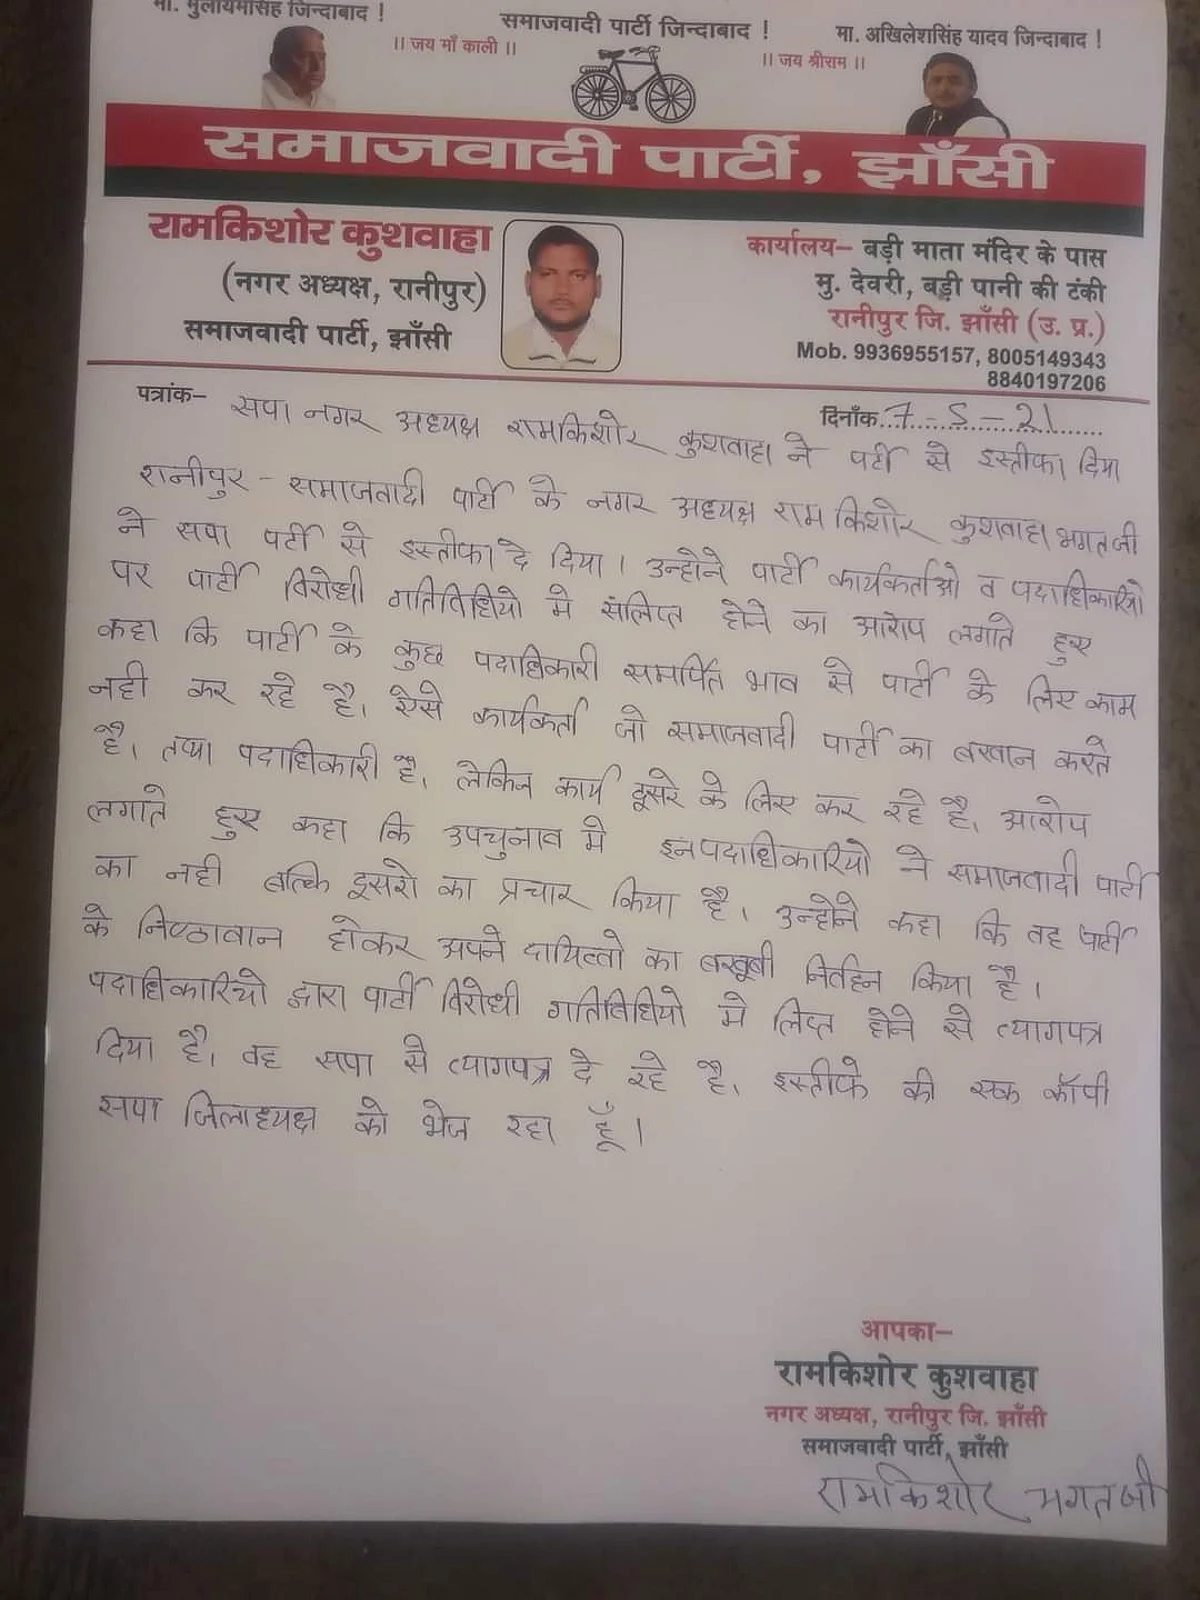 मा. मुलायमसिंह जिन्दाबाद !
समाजवादी पार्टी जिन्दाबाद !
मा. अखिलेशसिंह यादव जिन्दाबाद !
।। जय माँ काली ।।
।। जय श्रीराम ।।
समाजवादी पार्टी, झाँसी
रामकिशोर कुशवाहा
(नगर अध्यक्ष, रानीपुर)
समाजवादी पार्टी, झाँसी
कार्यालय– बड़ी माता मंदिर के पास
मु. देवरी, बड़ी पानी की टंकी
रानीपुर जि. झाँसी (उ. प्र.)
Mob. 9936955157, 8005149343
8840197206
पत्रांक–
दिनाँक 7-5-21
सपा नगर अध्यक्ष रामकिशोर कुशवाहा ने पर्टी से इस्तीफा दिया
रानीपुर - समाजवादी पार्टी के नगर अध्यक्ष राम किशोर कुशवाहा भगतजी
ने सपा पर्टी से इस्तीफा दे दिया। उन्होने पार्टी कार्यकर्ताओ व पदाधिकारियो
पर पार्टी विरोधी गतिविधियो मे संलिप्त होने का आरोप लगाते हुए
कहा कि पार्टी के कुछ पदाधिकारी समर्पित भाव से पार्टी के लिए काम
नही कर रहे है। ऐसे कार्यकर्ता जो समाजवादी पार्टी का बखान करते
है। तथा पदाधिकारी है। लेकिन कार्य दूसरे के लिए कर रहे है। आरोप
लगाते हुए कहा कि उपचुनाव मे इनपदाधिकारियो ने समाजवादी पार्टी
का नही बल्कि दूसरो का प्रचार किया है। उन्होने कहा कि वह पार्टी
के निष्ठावान होकर अपने दायित्तो का बखूबी निर्वहन किया है।
पदाधिकारियो द्वारा पार्टी विरोधी गतिविधियो मे लिप्त होने से त्यागपत्र
दिया है। वह सपा से त्यागपत्र दे रहे है। इस्तीफे की एक कॉपी
सपा जिलाध्यक्ष को भेज रहा हूँ।
आपका–
रामकिशोर कुशवाहा
नगर अध्यक्ष, रानीपुर जि. झाँसी
समाजवादी पार्टी, झाँसी
रामकिशोर भगतजी